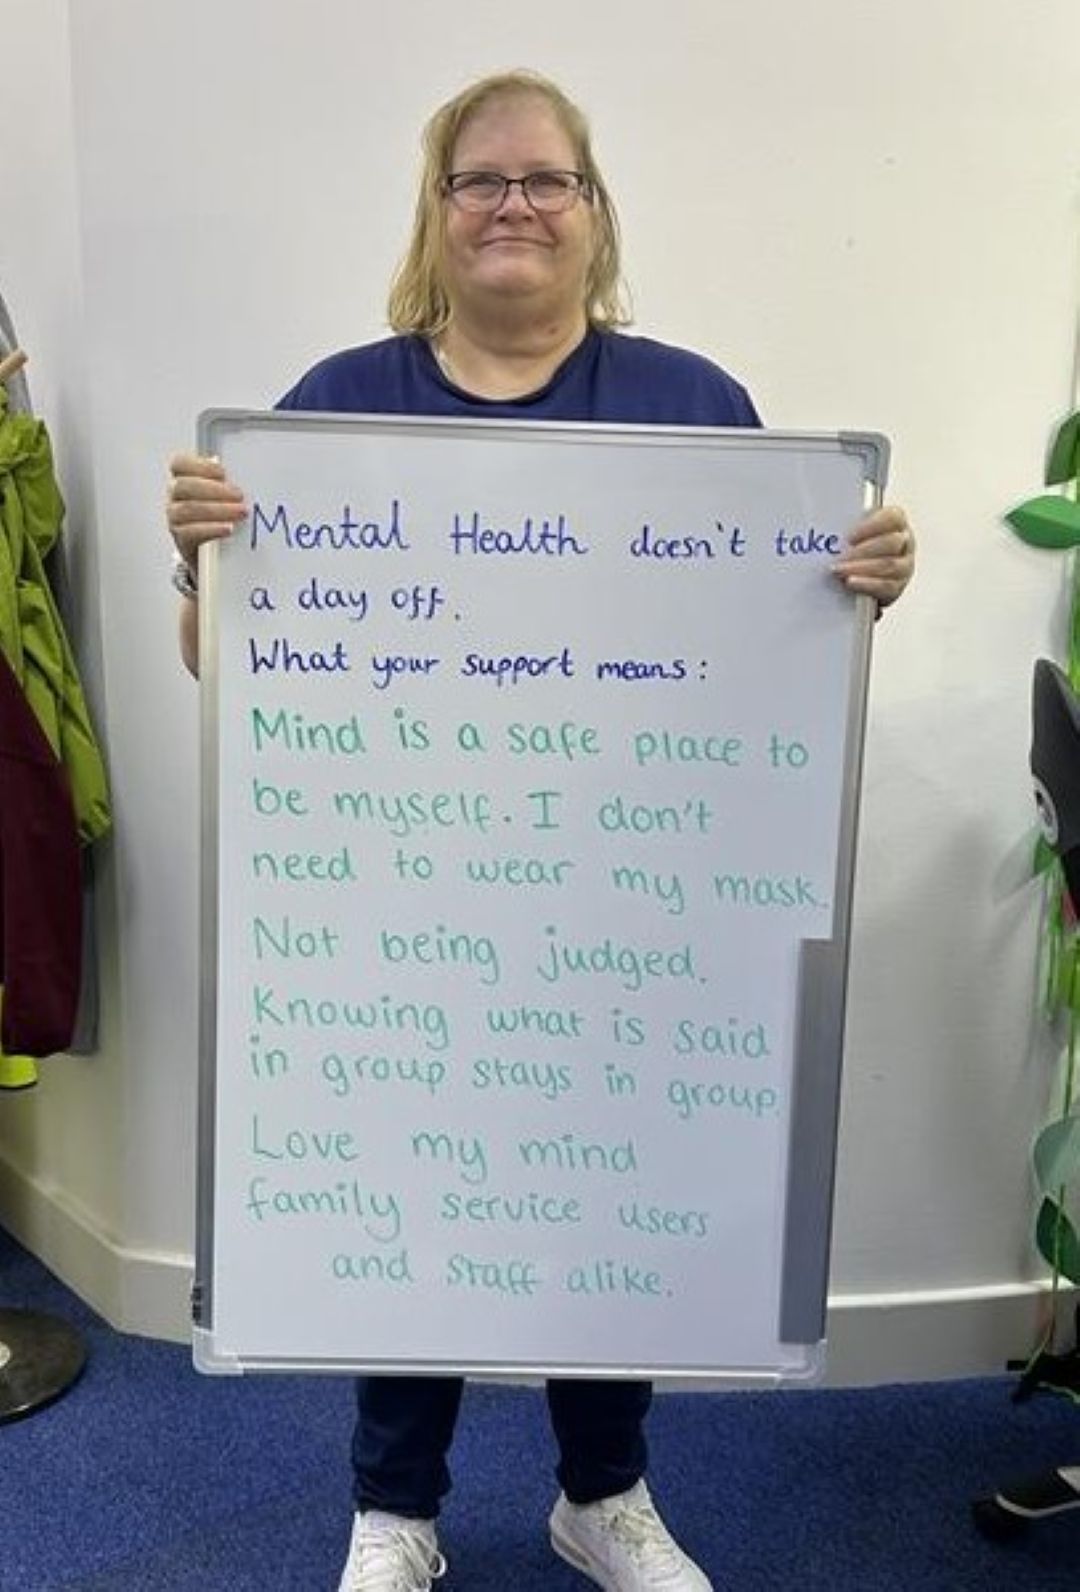 Mental Health doesn't take
a day off.
What your support means:
Mind is a safe place to
be myself. I don't
need to wear my mask.
Not being judged.
Knowing what is said
in group stays in group.
Love my mind
family service users
and staff alike.